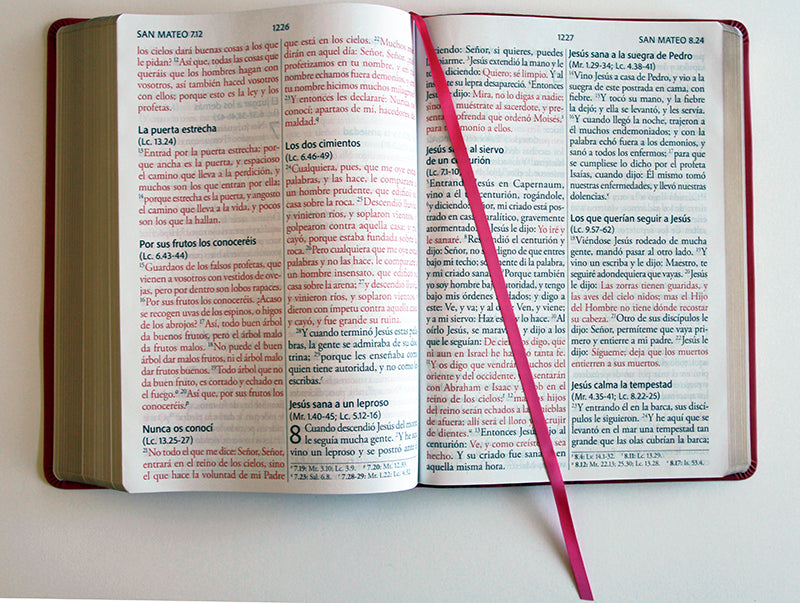 SAN MATEO 7.12
1226
los cielos dará buenas cosas a los que
le pidan? 12 Así que, todas las cosas que
queráis que los hombres hagan con
vosotros, así también haced vosotros
con ellos; porque esto es la ley y los
profetas.
La puerta estrecha
(Lc. 13.24)
13 Entrad por la puerta estrecha; por-
que ancha es la puerta, y espacioso
el camino que lleva a la perdición, y
muchos son los que entran por ella;
14 porque estrecha es la puerta, y angosto
el camino que lleva a la vida, y pocos
son los que la hallan.
Por sus frutos los conoceréis
(Lc. 6.43-44)
15 Guardaos de los falsos profetas, que
vienen a vosotros con vestidos de ove-
jas, pero por dentro son lobos rapaces.
16 Por sus frutos los conoceréis. ¿Acaso
se recogen uvas de los espinos, o higos
de los abrojos? 17 Así, todo buen árbol
da buenos frutos, pero el árbol malo
da frutos malos. 18 No puede el buen
árbol dar malos frutos, ni el árbol malo
dar frutos buenos. 19 Todo árbol que no
da buen fruto, es cortado y echado en
el fuego. 20 Así que, por sus frutos los
conoceréis.
Nunca os conocí
(Lc. 13.25-27)
21 No todo el que me dice: Señor, Señor,
entrará en el reino de los cielos, sino
el que hace la voluntad de mi Padre
que está en los cielos. 22 Muchos me
dirán en aquel día: Señor, Señor,
profetizamos en tu nombre, y en
nombre echamos fuera demonios,
tu nombre hicimos muchos milagros
23 Y entonces les declararé: Nunca
conocí; apartaos de mí, hacedores
maldad.
Los dos cimientos
(Lc. 6.46-49)
24 Cualquiera, pues, que me oye
palabras, y las hace, le compararé
un hombre prudente, que edificó
casa sobre la roca. 25 Descendió lluvia,
y vinieron ríos, y soplaron vientos,
golpearon contra aquella casa; y
cayó, porque estaba fundada sobre
roca. 26 Pero cualquiera que me oye
palabras y no las hace, le compararé
un hombre insensato, que edificó
casa sobre la arena; 27 y descendió
y vinieron ríos, y soplaron vientos,
dieron con ímpetu contra aquella
y cayó, y fue grande su ruina.
28 Y cuando terminó Jesús estas pala-
bras, la gente se admiraba de su doc-
trina; 29 porque les enseñaba como
quien tiene autoridad, y no como los
escribas.
Jesús sana a un leproso
(Mr. 1.40-45; Lc. 5.12-16)
8 Cuando descendió Jesús del monte,
le seguía mucha gente. 2 Y he
vino un leproso y se postró ante
7.19: Mt. 3.10; Lc. 3.9. 7.20: Mt. 12.33.
7.23: Sal. 6.8. 7.28-29: Mr. 1.22; Lc. 4.32.
1227
SAN MATEO 8.24
diciendo: Señor, si quieres, puedes
limpiarme. 3 Jesús extendió la mano y le
diciendo: Quiero; sé limpio. Y al
instante su lepra desapareció. 4 Entonces
Jesús le dijo: Mira, no lo digas a nadie;
sino ve, muéstrate al sacerdote, y pre-
senta la ofrenda que ordenó Moisés,
para testimonio a ellos.
Jesús sana al siervo
de un centurión
(Lc. 7.1-10)
5 Entrando Jesús en Capernaum,
vino a él un centurión, rogándole,
6 y diciendo: Señor, mi criado está pos-
trado en casa, paralítico, gravemente
atormentado. 7 Y Jesús le dijo: Yo iré y
le sanaré. 8 Respondió el centurión y
dijo: Señor, no soy digno de que entres
bajo mi techo; solamente di la palabra,
y mi criado sanará. 9 Porque también
yo soy hombre bajo autoridad, y tengo
bajo mis órdenes soldados; y digo a
este: Ve, y va; y al otro: Ven, y viene;
y a mi siervo: Haz esto, y lo hace. 10 Al
oírlo Jesús, se maravilló, y dijo a los
que le seguían: De cierto os digo, que
ni aun en Israel he hallado tanta fe.
11 Y os digo que vendrán muchos del
oriente y del occidente, y se sentarán
con Abraham e Isaac y Jacob en el
reino de los cielos; 12 mas los hijos
del reino serán echados a las tinieblas
de afuera; allí será el lloro y el crujir
de dientes. 13 Entonces Jesús dijo al
centurión: Ve, y como creíste, te sea
hecho. Y su criado fue sanado en
aquella misma hora.
Jesús sana a la suegra de Pedro
(Mr. 1.29-34; Lc. 4.38-41)
14 Vino Jesús a casa de Pedro, y vio a la
suegra de este postrada en cama, con
fiebre. 15 Y tocó su mano, y la fiebre
la dejó; y ella se levantó, y les servía.
16 Y cuando llegó la noche, trajeron a
él muchos endemoniados; y con la
palabra echó fuera a los demonios, y
sanó a todos los enfermos; 17 para que
se cumpliese lo dicho por el profeta
Isaías, cuando dijo: Él mismo tomó
nuestras enfermedades, y llevó nuestras
dolencias.
Los que querían seguir a Jesús
(Lc. 9.57-62)
18 Viéndose Jesús rodeado de mucha
gente, mandó pasar al otro lado. 19 Y
vino un escriba y le dijo: Maestro, te
seguiré adondequiera que vayas. 20 Jesús
le dijo: Las zorras tienen guaridas, y
las aves del cielo nidos; mas el Hijo
del Hombre no tiene dónde recostar
su cabeza. 21 Otro de sus discípulos le
dijo: Señor, permíteme que vaya pri-
mero y entierre a mi padre. 22 Jesús le
dijo: Sígueme; deja que los muertos
entierren a sus muertos.
Jesús calma la tempestad
(Mr. 4.35-41; Lc. 8.22-25)
23 Y entrando él en la barca, sus discí-
pulos le siguieron. 24 Y he aquí que se
levantó en el mar una tempestad tan
grande que las olas cubrían la barca;
8.4: Lv. 14.1-32. 8.11: Lc. 13.29.
8.12: Mt. 22.13; 25.30; Lc. 13.28. 8.17: Is. 53.4.